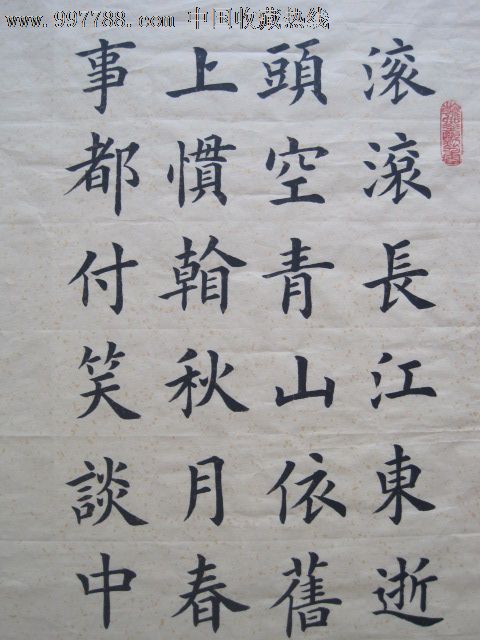 www.997788.com 中国收藏热线
滚滾長江東逝
頭空青山依舊
上慣翰秋月春
事都付笑談中